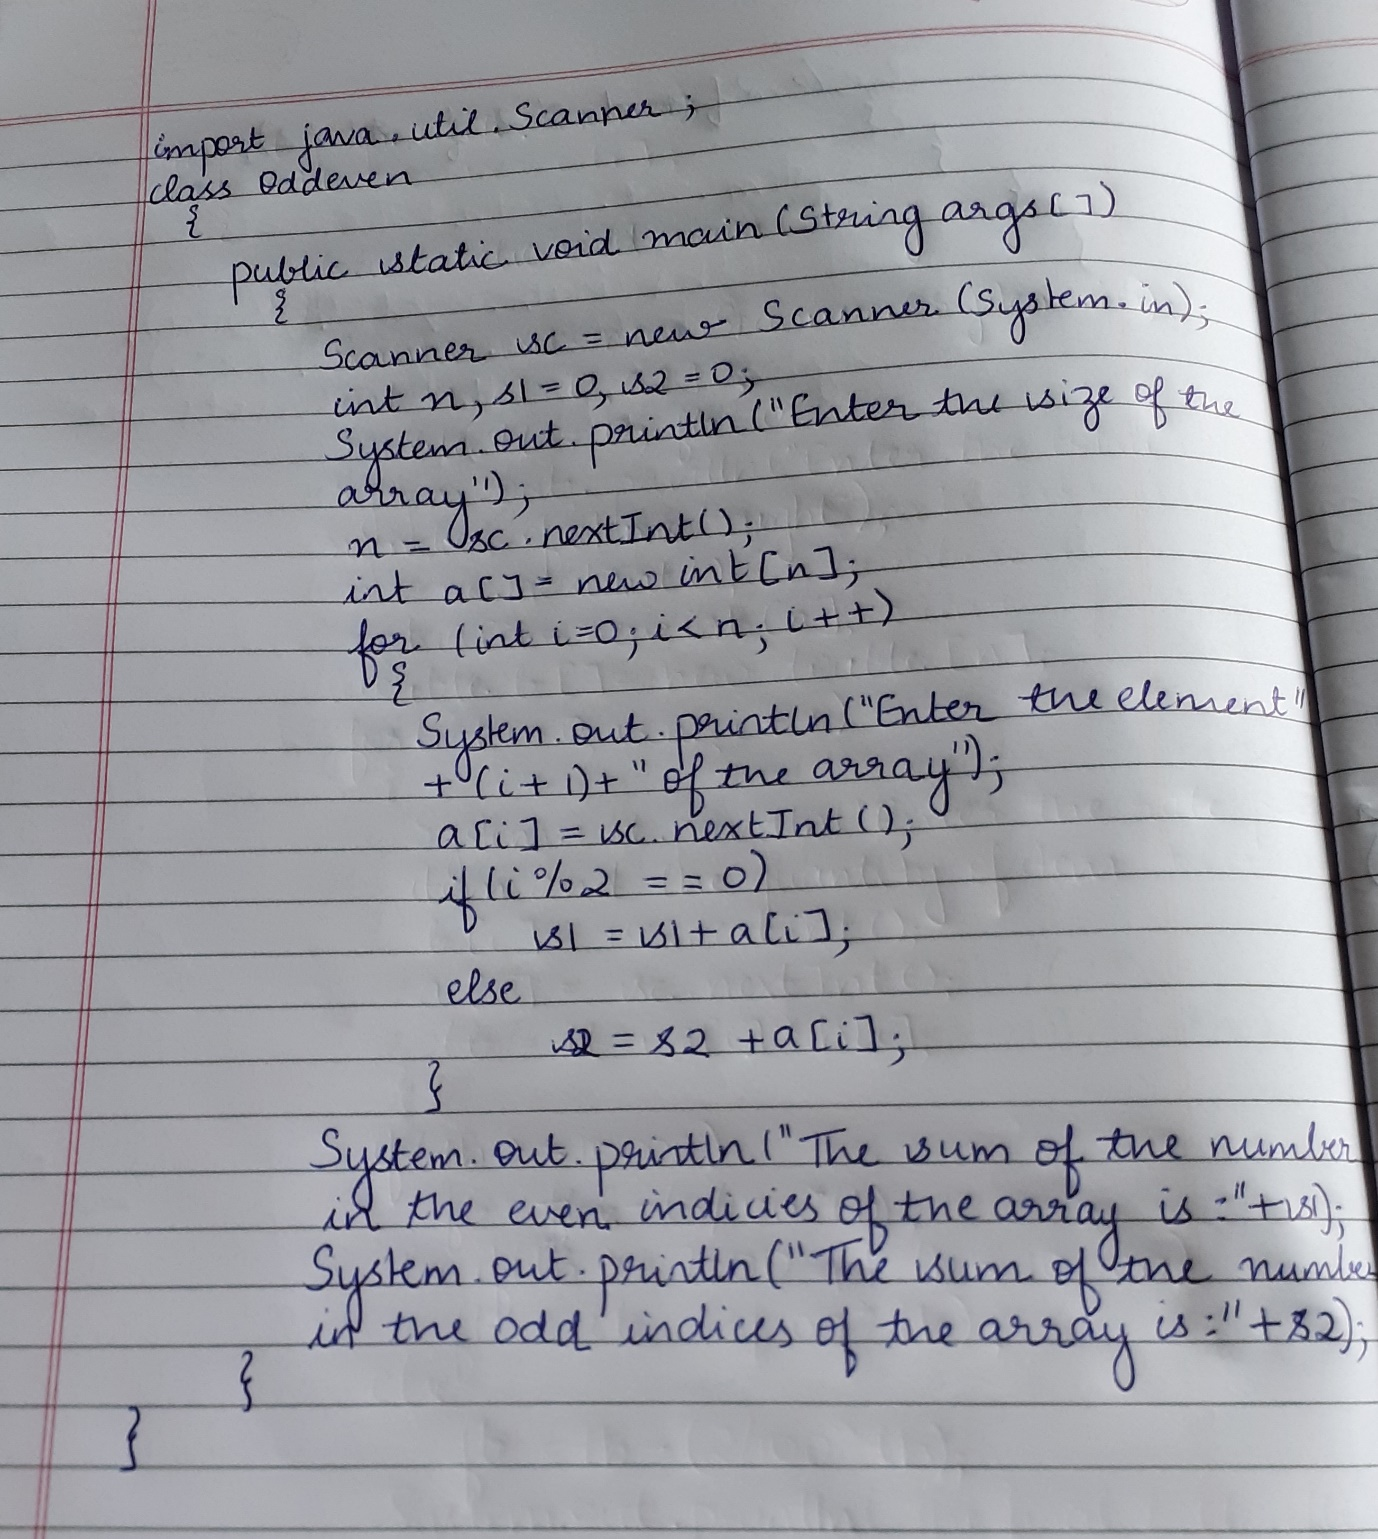 import java.util.Scanner;
class Oddeven
{
public static void main (String args[])
{
Scanner sc = new Scanner (System.in);
int n, s1 = 0, s2 = 0;
System.out.println ("Enter the size of the
array");
n = sc.nextInt();
int a[] = new int [n];
for (int i=0; i<n; i++)
{
System.out.println ("Enter the element"
+ (i+1)+ " of the array");
a[i] = sc.nextInt();
if (i%2 == 0)
s1 = s1+ a[i];
else
s2 = s2 +a[i];
}
System.out.println ("The sum of the number
in the even indicies of the array is :"+s1);
System.out.println ("The sum of the number
in the odd indices of the array is :"+s2);
}
}